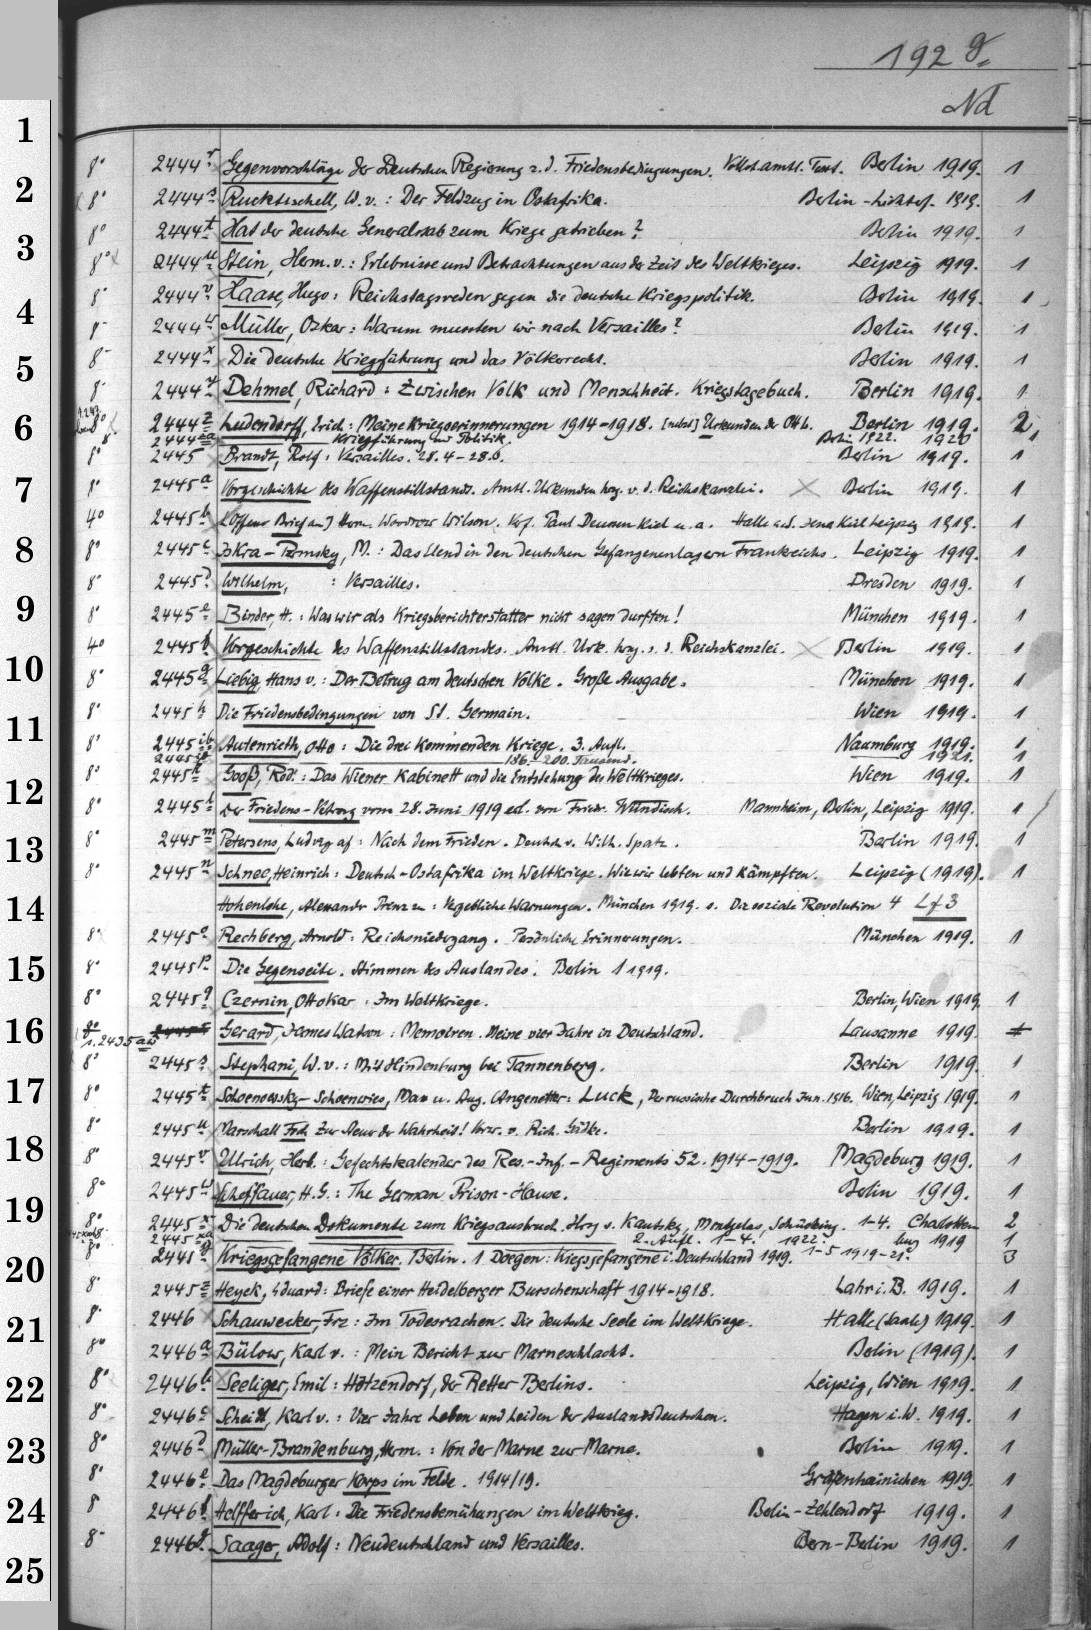 192 g.
Nd
1
8° 2444 r Gegenvorschläge der Deutschen Regierung z. d. Friedensbedingungen. Vollst. amtl. Text. Berlin 1919. 1
2
8° 2444 s Ruckteschell, W. v.: Der Feldzug in Ostafrika. Berlin-Lichterf. 1919. 1
8° 2444 t Hat der deutsche Generalstab zum Kriege getrieben? Berlin 1919. 1
3
8° 2444 u Stein, Herm. v.: Erlebnisse und Betrachtungen aus der Zeit des Weltkrieges. Leipzig 1919. 1
8° 2444 v Haase, Hugo: Reichstagsreden gegen die deutsche Kriegspolitik. Berlin 1919. 1
4
8° 2444 w Müller, Oskar: Warum mussten wir nach Versailles? Berlin 1919. 1
8° 2444 x Die deutsche Kriegführung und das Völkerrecht. Berlin 1919. 1
5
8° 2444 y Dehmel, Richard: Zwischen Volk und Menschheit. Kriegstagebuch. Berlin 1919. 1
6
8° 2444 z Ludendorff, Erich: Meine Kriegserinnerungen 1914-1918. [nebst] Urkunden der OHL. Berlin 1919. 2
8° 2444 za Kriegführung und Politik. Berlin 1922. 1920 1
8° 2445 Brandt, Rolf: Versailles. 28.4-28.6. Berlin 1919. 1
7
8° 2445 a Vorgeschichte des Waffenstillstands. Amtl. Urkunden hrsg. v. d. Reichskanzlei. Berlin 1919. 1
4° 2445 b [Offener Brief an] Herrn Woodrow Wilson. Verf. Paul Deussen Kiel u. a. Halle a.S. Jena Kiel Leipzig 1919. 1
8
8° 2445 c Iskra-Tromsky, M.: Das Elend in den deutschen Gefangenenlagern Frankreichs. Leipzig 1919. 1
8° 2445 d Wilhelm, : Versailles. Dresden 1919. 1
9
8° 2445 e Binder, H.: Was wir als Kriegsberichterstatter nicht sagen durften! München 1919. 1
4° 2445 f Vorgeschichte des Waffenstillstandes. Amtl. Urk. hrsg. v. d. Reichskanzlei. Berlin 1919. 1
10
8° 2445 g Liebig, Hans v.: Der Betrug am deutschen Volke. Große Ausgabe. München 1919. 1
8° 2445 h Die Friedensbedingungen von St. Germain. Wien 1919. 1
11
8° 2445 ib Autenrieth, Otto: Die drei kommenden Kriege. 3. Aufl. Naumburg 1919. 1
2445 186.-200. Tausend. 1921. 1
8° 2445 k Gooß, Rod.: Das Wiener Kabinett und die Entstehung des Weltkrieges. Wien 1919. 1
12
8° 2445 l Der Friedens-Vertrag vom 28. Juni 1919 ed. von Friedr. Mannheim, Berlin, Leipzig 1919. 1
13
8° 2445 m Petersens, Ludvig af: Nach dem Frieden. Deutsch v. Wilh. Spatz. Berlin 1919. 1
8° 2445 n Schnee, Heinrich: Deutsch-Ostafrika im Weltkriege. Wie wir lebten und kämpften. Leipzig (1919). 1
14
Hohenlohe, Alexander Prinz zu: Vergebliche Warnungen. München 1919. s. Die soziale Revolution 4 Lf 3
8° 2445 o Rechberg, Arnold: Reichsniedergang. Persönliche Erinnerungen. München 1919. 1
15
8° 2445 p Die Gegenseite. Stimmen des Auslandes. Berlin 1 1919.
8° 2445 q Czernin, Ottokar: Im Weltkriege. Berlin, Wien 1919 1
16
8° 2445 r Gerard, James Watson: Memoiren. Meine vier Jahre in Deutschland. Lausanne 1919. 1
8° 2445 s Stephani, W. v.: Mit Hindenburg bei Tannenberg. Berlin 1919. 1
17
8° 2445 t Max u. Aug. Angenetter: Luck, Der russische Durchbruch Jun. 1916. Wien, Leipzig 1919. 1
8° 2445 u Marschall Foch. Zur Steuer der Wahrheit! v. Rich. Gädke. Berlin 1919. 1
18
8° 2445 v Ullrich, Herb.: Gefechtskalender des Res.-Inf.-Regiments 52. 1914-1919. Magdeburg 1919. 1
8° 2445 w Scheffauer, H. G.: The German Prison-House. Berlin 1919. 1
19
8° 2445 x Die deutschen Dokumente zum Kriegsausbruch. Hrsg v. Kautsky, Montgelas, Schücking. 1-4. Charlotten 2
2445 xa 2. Aufl. 1-4. 1922. burg 1919 1
8° 2445 y Kriegsgefangene Völker. Berlin. 1 Doegen: Kriegsgefangene i. Deutschland 1919. 1-5 1919-21. 3
20
8° 2445 z Heyck, Eduard: Briefe einer Heidelberger Burschenschaft 1914-1918. Lahr i. B. 1919. 1
8° 2446 Schauwecker, Frz: Im Todesrachen. Die deutsche Seele im Weltkriege. Halle (Saale) 1919. 1
21
8° 2446 a Bülow, Karl v.: Mein Bericht zur Marneschlacht. Berlin (1919). 1
22
8° 2446 b Seeliger, Emil: Hötzendorf, der Retter Berlins. Leipzig, Wien 1919. 1
8° 2446 c Scheidt, Karl v.: Vier Jahre Leben und Leiden der Auslandsdeutschen. Hagen i. W. 1919. 1
23
8° 2446 d Müller-Brandenburg, Herm.: Von der Marne zur Marne. Berlin 1919. 1
8° 2446 e Das Magdeburger Korps im Felde. 1914/19. Gräfenhainichen 1919. 1
24
8° 2446 f Helfferich, Karl: Die Friedensbemühungen im Weltkrieg. Berlin-Zehlendorf 1919. 1
8° 2446 g Saager, Adolf: Neudeutschland und Versailles. Bern-Berlin 1919. 1
25